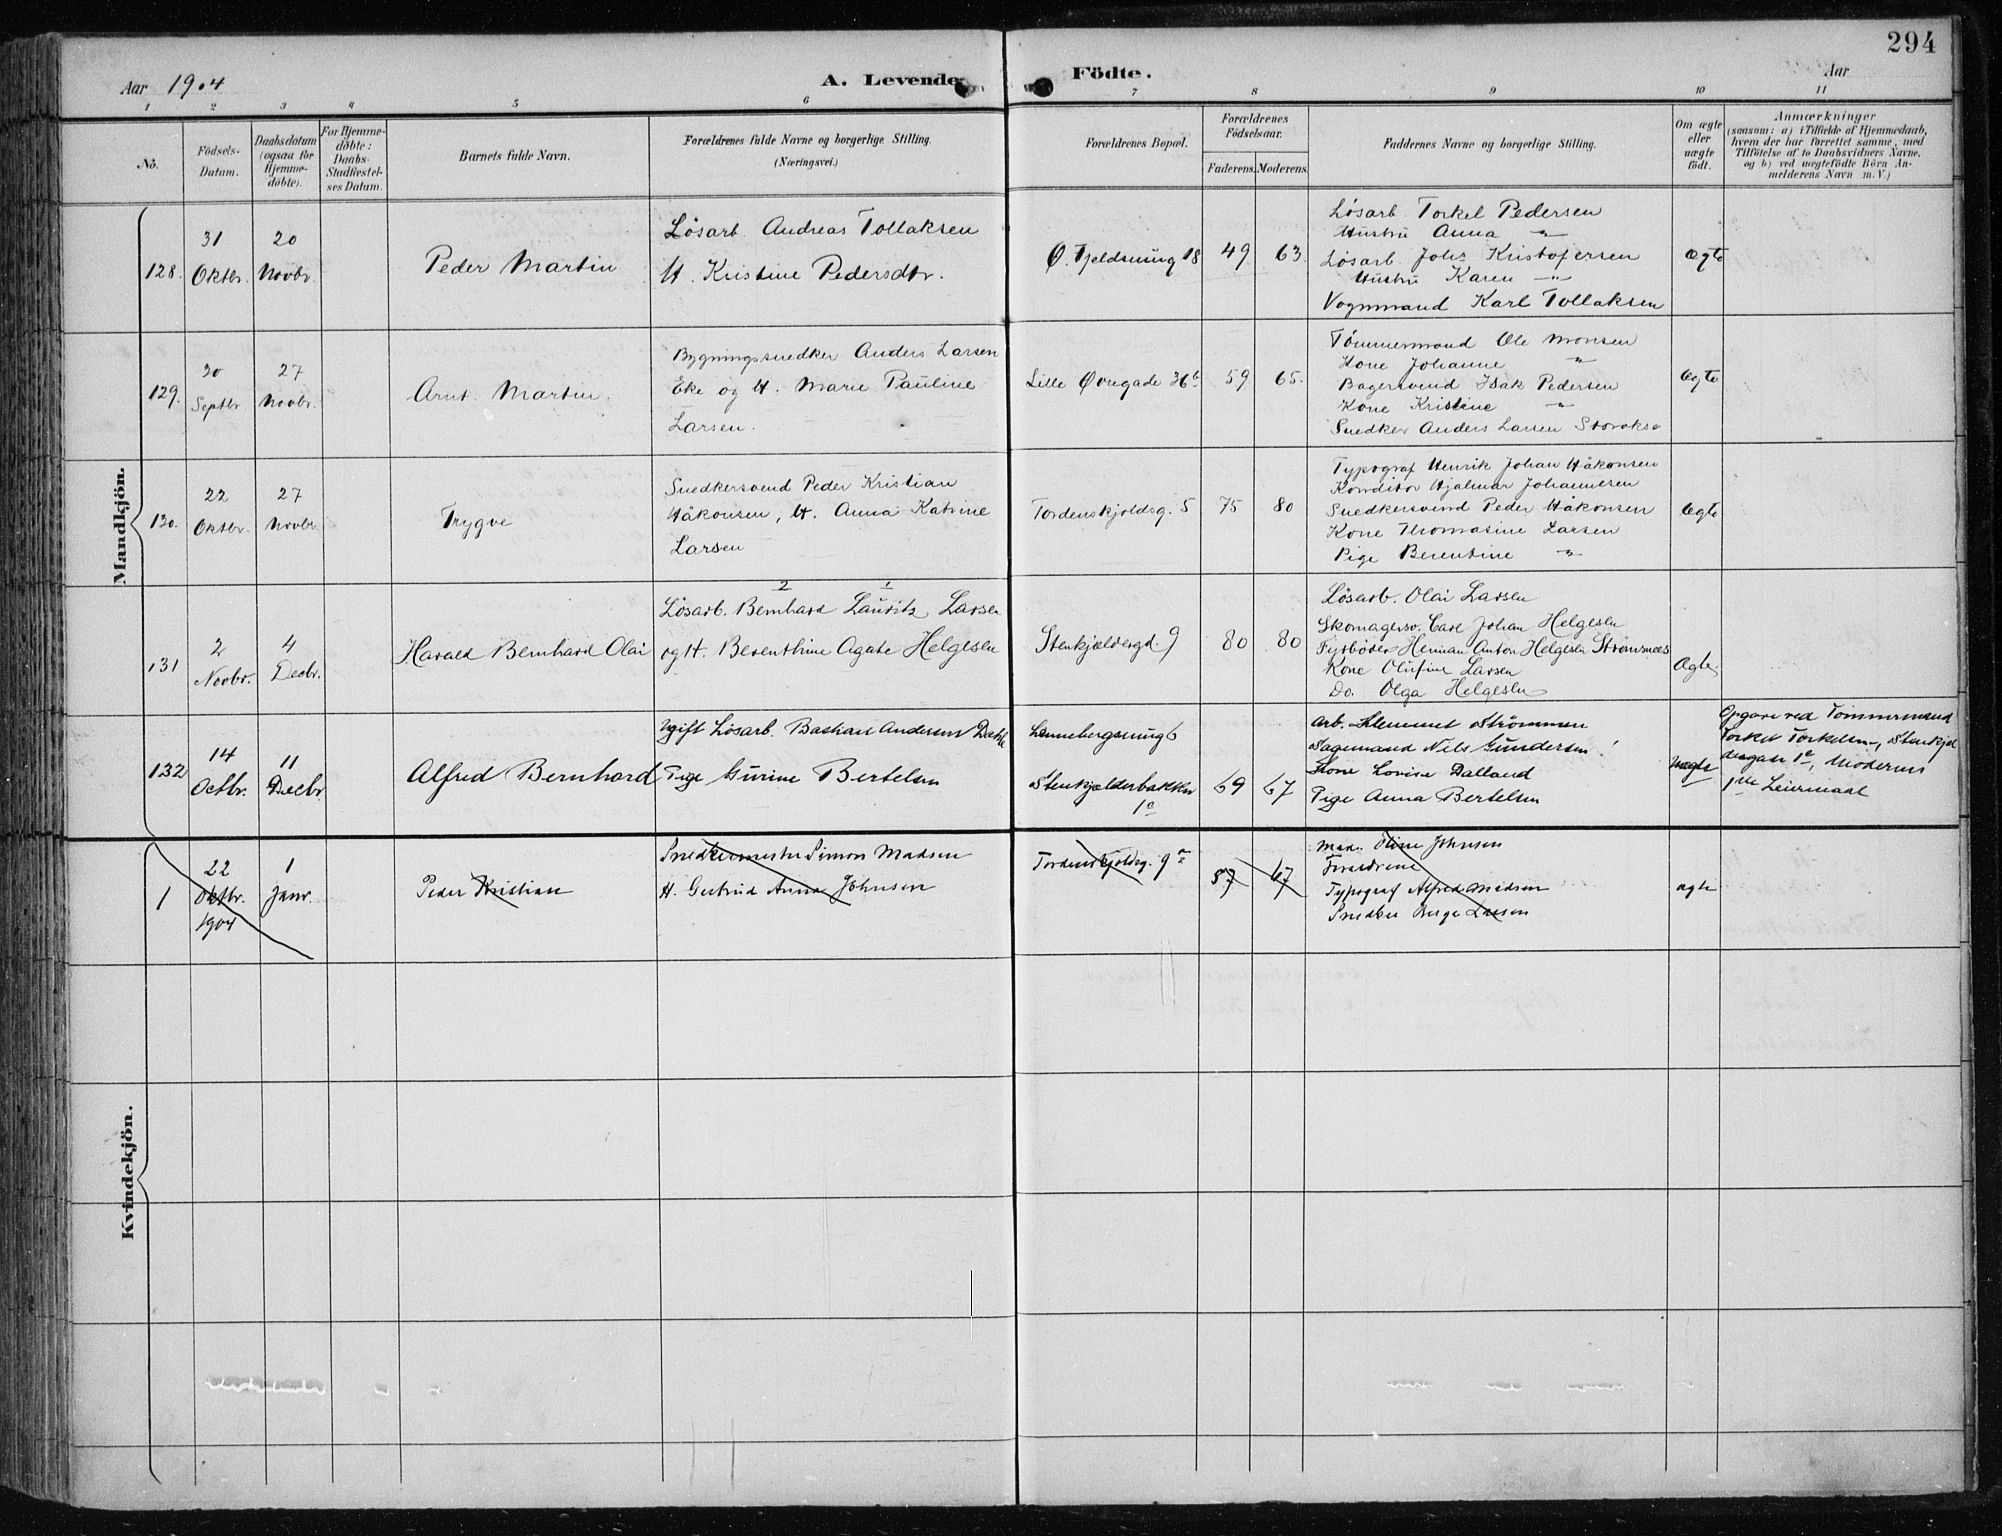 294
Aar 1904
A. Levende Födte.
Aar
1 2 3 4 5 6 7 8 9 10 11
No.
Födsels-
Datum.
Daabsdatum
(ogsaa for
Hjemme-
döbte).
For Hjemme-
döbte:
Daabs-
Stadfæstel-
ses Datum.
Barnets fulde Navn.
Forældrenes fulde Navne og borgerlige Stilling
(Næringsvei.)
Forældrenes Bopæl.
Forældrenes
Födselsaar.
Faderens. Moderens.
Faddernes Navne og borgerlige Stilling.
Om ægte
eller
uægte
födt.
Anmærkninger
(saasom: a) i Tilfælde af Hjemmedaab,
hvem der har forrettet samme, med
Tilföielse af to Daabsvidners Navne,
og b) ved uægtefödte Börn An-
melderens Navn m. V.)
Mandkjön.
128.
31
Oktbr.
20
Novbr.
Peder Martin
Lösarb. Andreas Tollaksen
H. Kristine Pedersdtr.
Ø. Fjeldsmug 18
49
63.
Lösarb. Torkel Pedersen
Hustru Anna "
Lösarb. Johs Kristofersen
Hustru Karen "
Vognmand Karl Tollaksen
Ægte
129.
30
Septbr
27
Novbr.
Arnt Martin.
Bygningssnedker Anders Larsen
Eke og H. Marie Pauline
Larsen.
Lille Øvregade 36b
59
65.
Tömmermand Ole Monsen
Kone Johanne "
Bagersvend Isak Pedersen
Kone Kristine "
Snedker Anders Larsen
Ægte
130.
22
Oktbr.
27
Novbr.
Trygve
Snedkersvend Peder Kristian
Håkonsen, H. Anna Katrine
Larsen
Tordenskjoldsg. 5
75
80
Typograf Henrik Johan Håkonsen
Konditor Hjalmar Johannesen
Snedkersvend Peder Håkonsen
Kone Thomasine Larsen
Pige Berentine "
Ægte
131
2
Novbr.
4
Decbr.
Harald Bernhard Olai
2 1
Lösarb. Bernhard Lauritz Larsen
og H. Berenthine Agate Helgesen
Stenkjældergd. 9
80
80
Lösarb. Olai Larsen
Skomagersv. Carl Johan Helgesen
Fyrböder Herman Anton Helgesen Strömsnes
Kone Olufine Larsen
Do. Olga Helgesen
Ægte
132
14
Octbr.
11
Decbr.
Alfred Bernhard
Ugift Lösarb. Bastian Andersen Dahle
Pige Gurine Bertelsen
Lennebergsmug 6
Stenkjælderbakken
1c
69
67
Arb. Klemmet Strömmen
Sagmand Nils Gundersen
Kone Lovise Dalland
Pige Anna Bertelsen
Uægte
Opgave ved Tömmermand
Torkel Torkelsen, Stenkjæl
dergate 1c, Moderens
1ste Leiermaal
Kvindekjön.
1
22
Oktbr.
1904
1
Janr.
Peder Kristian
Snedkermester Simon Madsen
H. Gertrud Anna Johnsen
Tordenskjoldsg. 9a
57
67
Mad. Oline Johnsen
Forældrene
Typograf Alfred Madsen
Snedker Berge Larsen
ægte